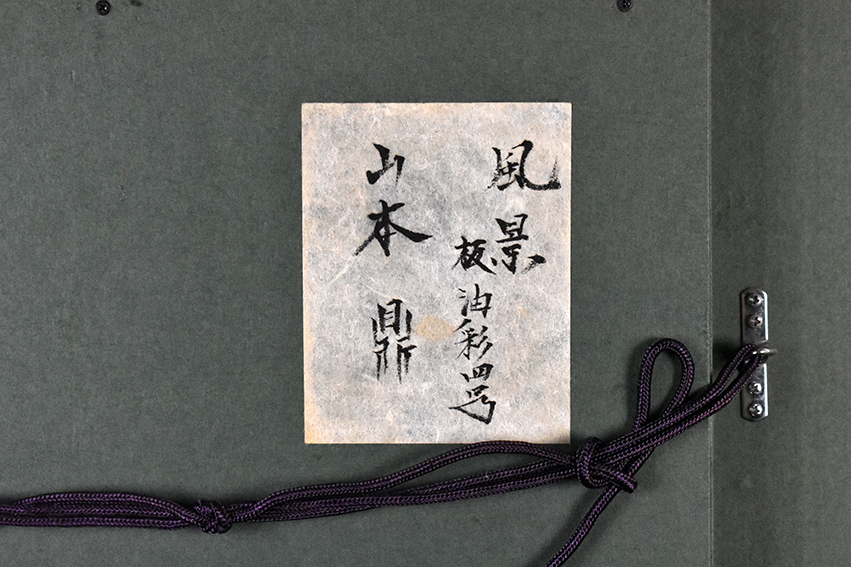 風景
板油彩四号
山本鼎